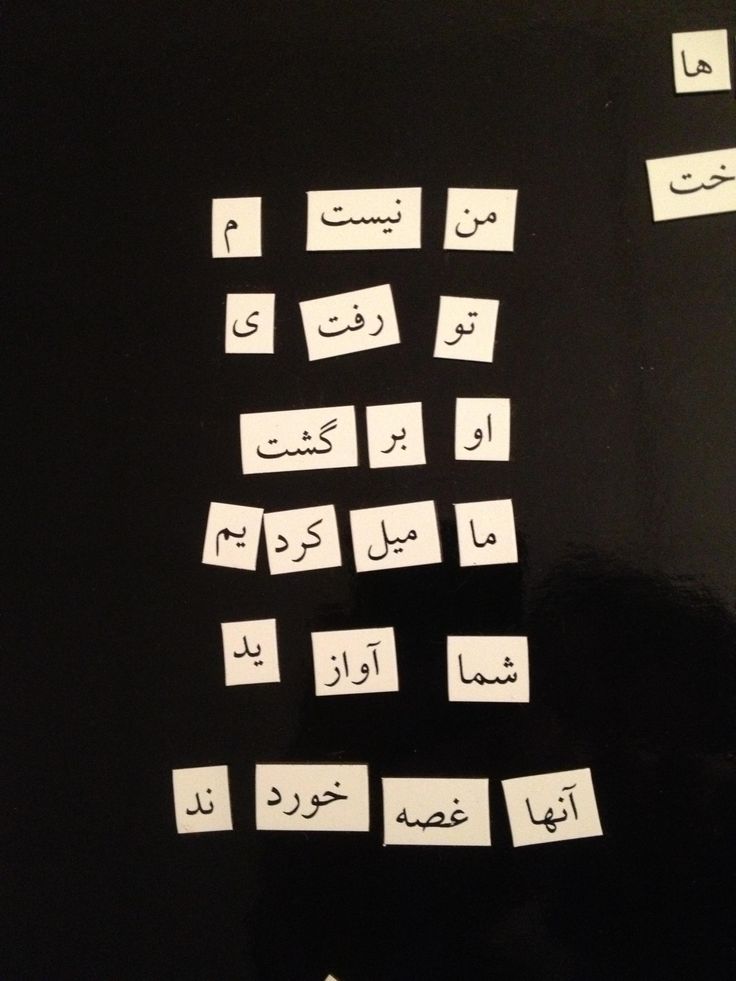 ها
خت
من نیست م
تو رفت ی
او بر گشت
ما میل کرد یم
شما آواز ید
آنها غصه خورد ند